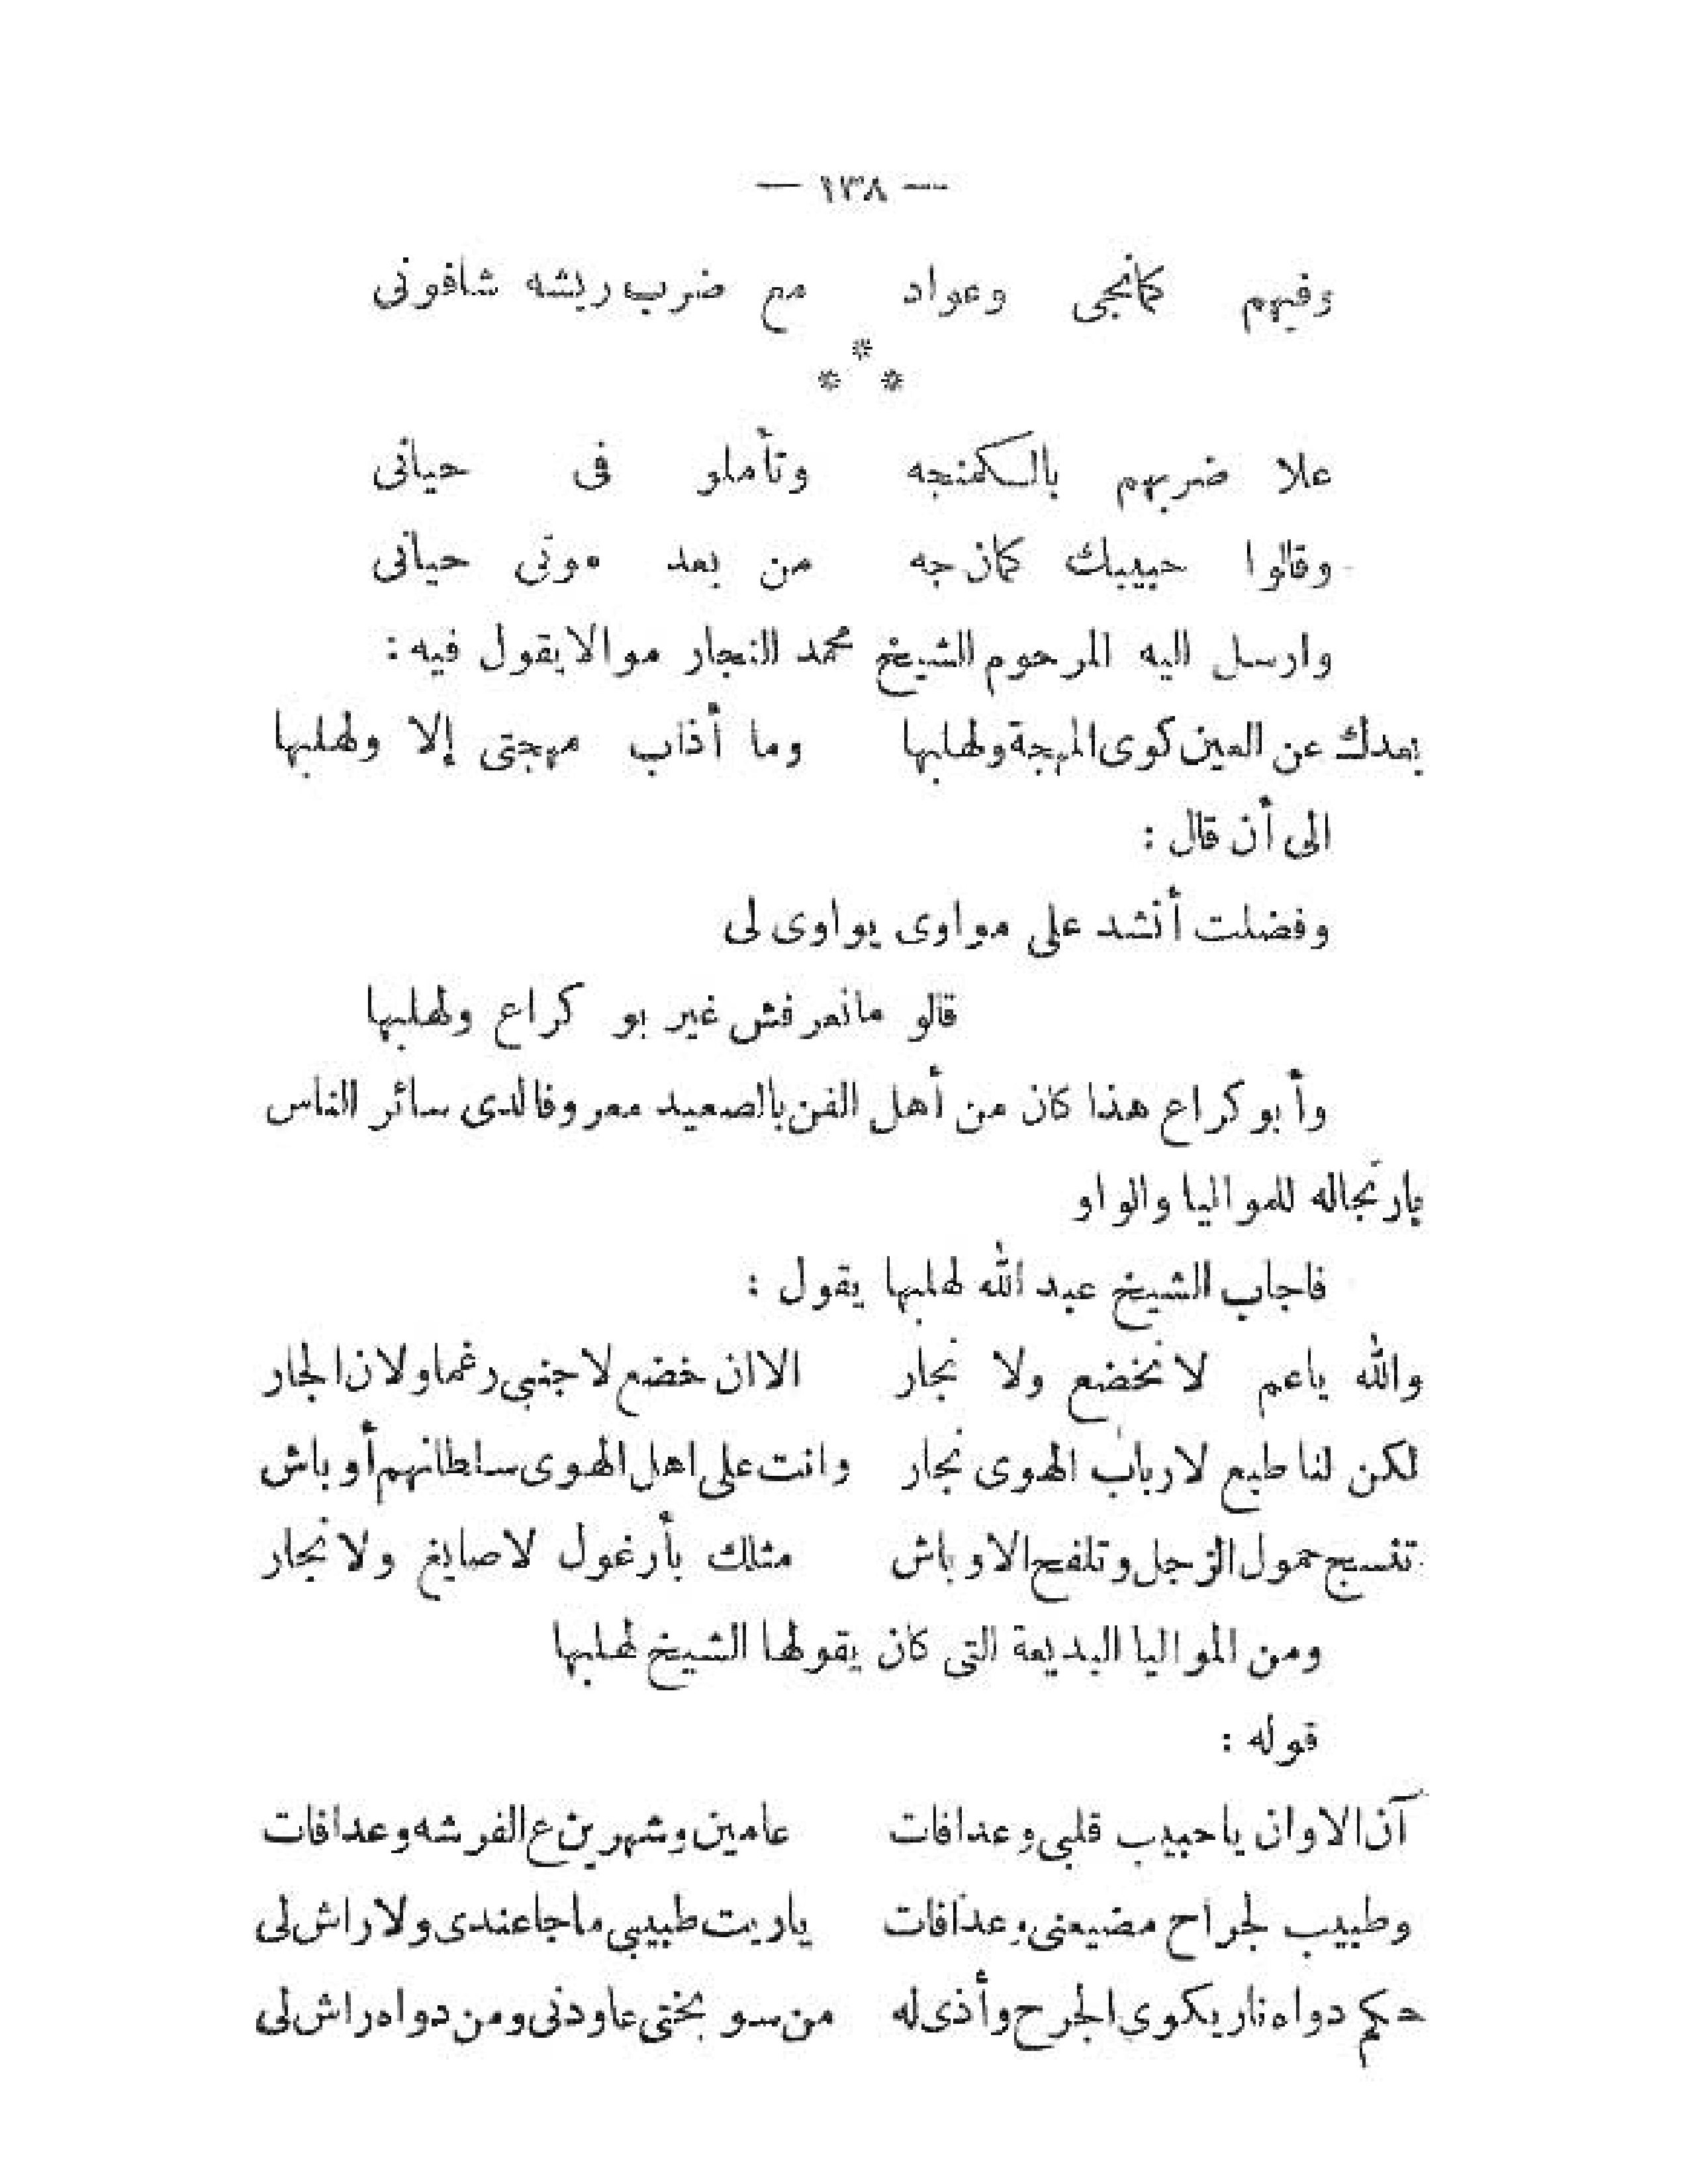 — ١٣٨ —
وفيهم كمانجى وعواد مع ضرب ريشه شافونى
* * *
علا ضربهم بالكمنجه وتأملو فى حياتى
وقالوا حبيبك كمان جه من بعد موتى حيانى
وارسل اليه المرحوم الشيخ محمد النجار موالا يقول فيه :
بعدك عن العين كوى المهجة ولهلبها وما أذاب مهجتى إلا ولهلبها
الى أن قال :
وفضلت أنشد على مواوى يواوى لى
قالو مانعرفش غير بو كراع ولهلبها
وأبو كراع هذا كان من أهل الفن بالصعيد معروفا لدى سائر الناس
بارتجاله للمواليا والواو
فاجاب الشيخ عبد الله لهلبها يقول :
والله ياعم لا نخضع ولا نجار الا ان خضع لاجنبى رغما ولان الجار
لكن لنا طبع لارباب الهوى نجار وانت على اهل الهوى سلطانهم أوباش
تنسج حمول الزجل وتلفح الاوباش مثلك بأرغول لاصايغ ولا نجار
ومن المواليا البديعة التى كان يقولها الشيخ لهلبها
قوله :
آن الاوان ياحبيب قلبى وعدافات عامين وشهرين ع الفرشه وعدافات
وطبيب لجراح مضيعنى وعدافات ياريت طبيبى ماجا عندى ولا راش لى
حكم دواه نار يكوى الجرح وأذى له من سو بختى عاودنى ومن دواه راش لى